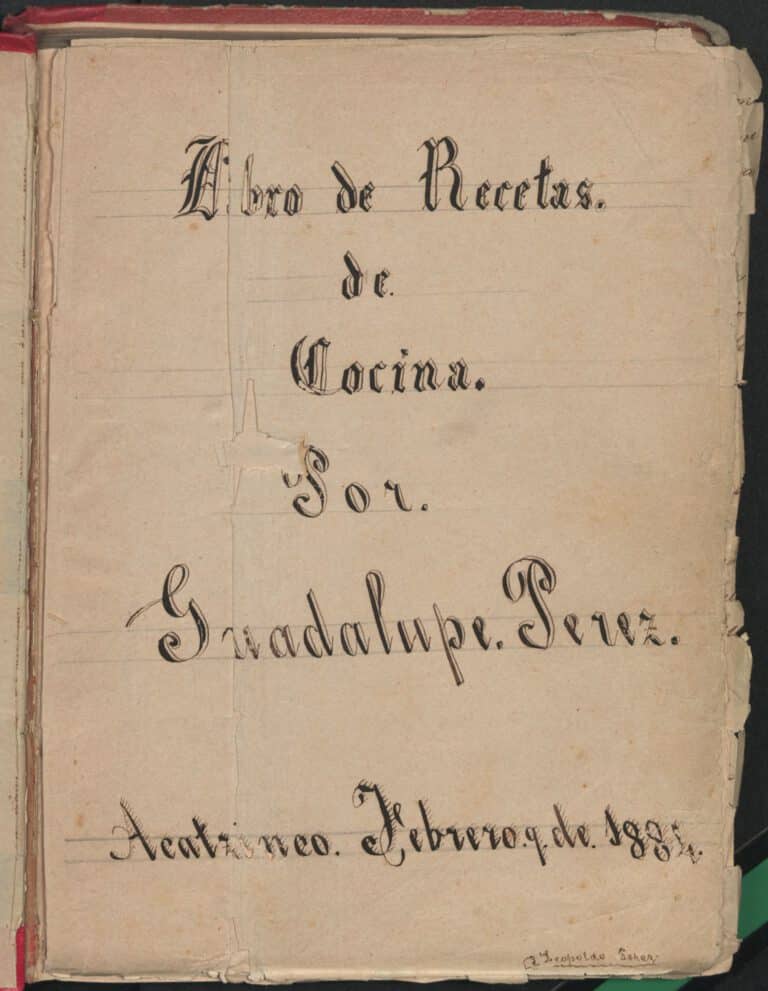 Libro de Recetas.
de.
Cocina.
Por.
Guadalupe. Perez.
Acatzinco. Febrero. 9. de. 1884.
Leopoldo Perez